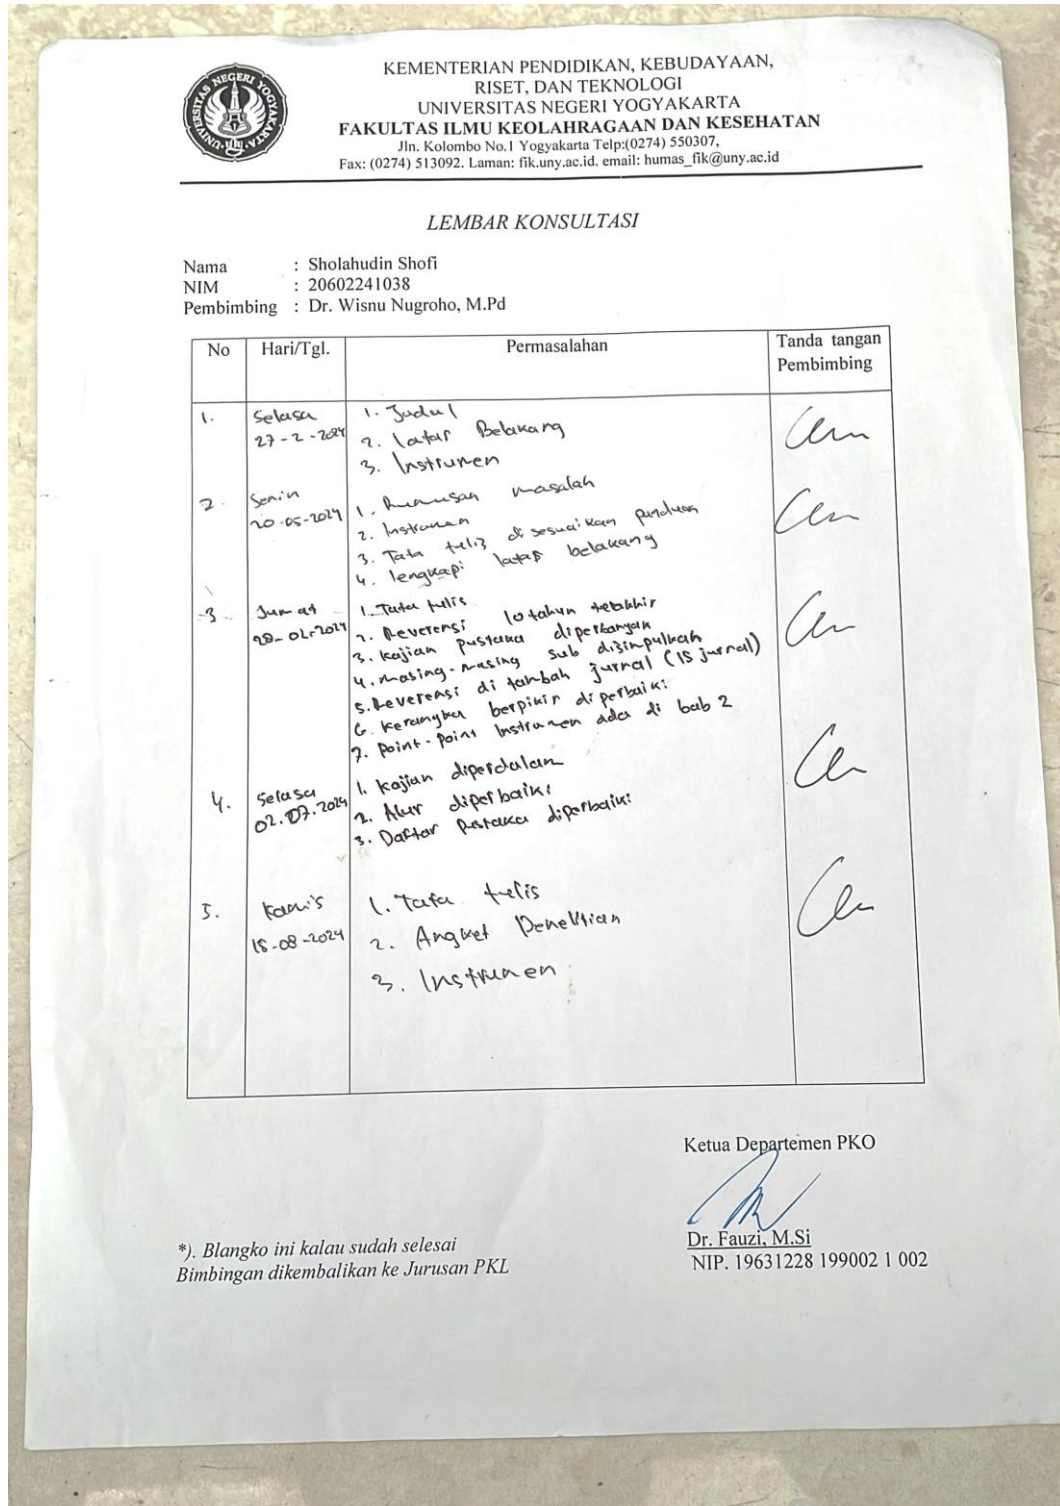 UNIVERSITAS NEGERI YOGYAKARTA
KEMENTERIAN PENDIDIKAN, KEBUDAYAAN,
RISET, DAN TEKNOLOGI
UNIVERSITAS NEGERI YOGYAKARTA
FAKULTAS ILMU KEOLAHRAGAAN DAN KESEHATAN
Jln. Kolombo No.1 Yogyakarta Telp:(0274) 550307,
Fax: (0274) 513092. Laman: fik.uny.ac.id. email: humas_fik@uny.ac.id
LEMBAR KONSULTASI
Nama : Sholahudin Shofi
NIM : 20602241038
Pembimbing : Dr. Wisnu Nugroho, M.Pd
No Hari/Tgl. Permasalahan Tanda tangan
Pembimbing
1. Selasa 1. Judul
27-2-2024 2. latar Belakang
3. Instrumen
2. Senin 1. Rumusan masalah
20-05-2024 2. Instrumen
3. Tata tulis disesuaikan panduan
4. lengkapi latar belakang
3. Jum at 1. Tata tulis
2. Reverensi 10 tahun terakhir
3. kajian pustaka
4. masing-masing sub disimpulkan
5. Reverensi di tambah jurnal (15 jurnal)
6. kerangka berpikir diperbaiki
7. Point-point Instrumen ada di bab 2
4. Selasa 1. kajian diperdalam
02.07.2024 2. Alur diperbaiki
3. Daftar Pustaka diperbaiki
5. Kamis 1. Tata tulis
-08-2024 2. Angket Penelitian
3. Instrumen
Ketua Departemen PKO
Dr. Fauzi, M.Si
NIP. 19631228 199002 1 002
*). Blangko ini kalau sudah selesai
Bimbingan dikembalikan ke Jurusan PKL